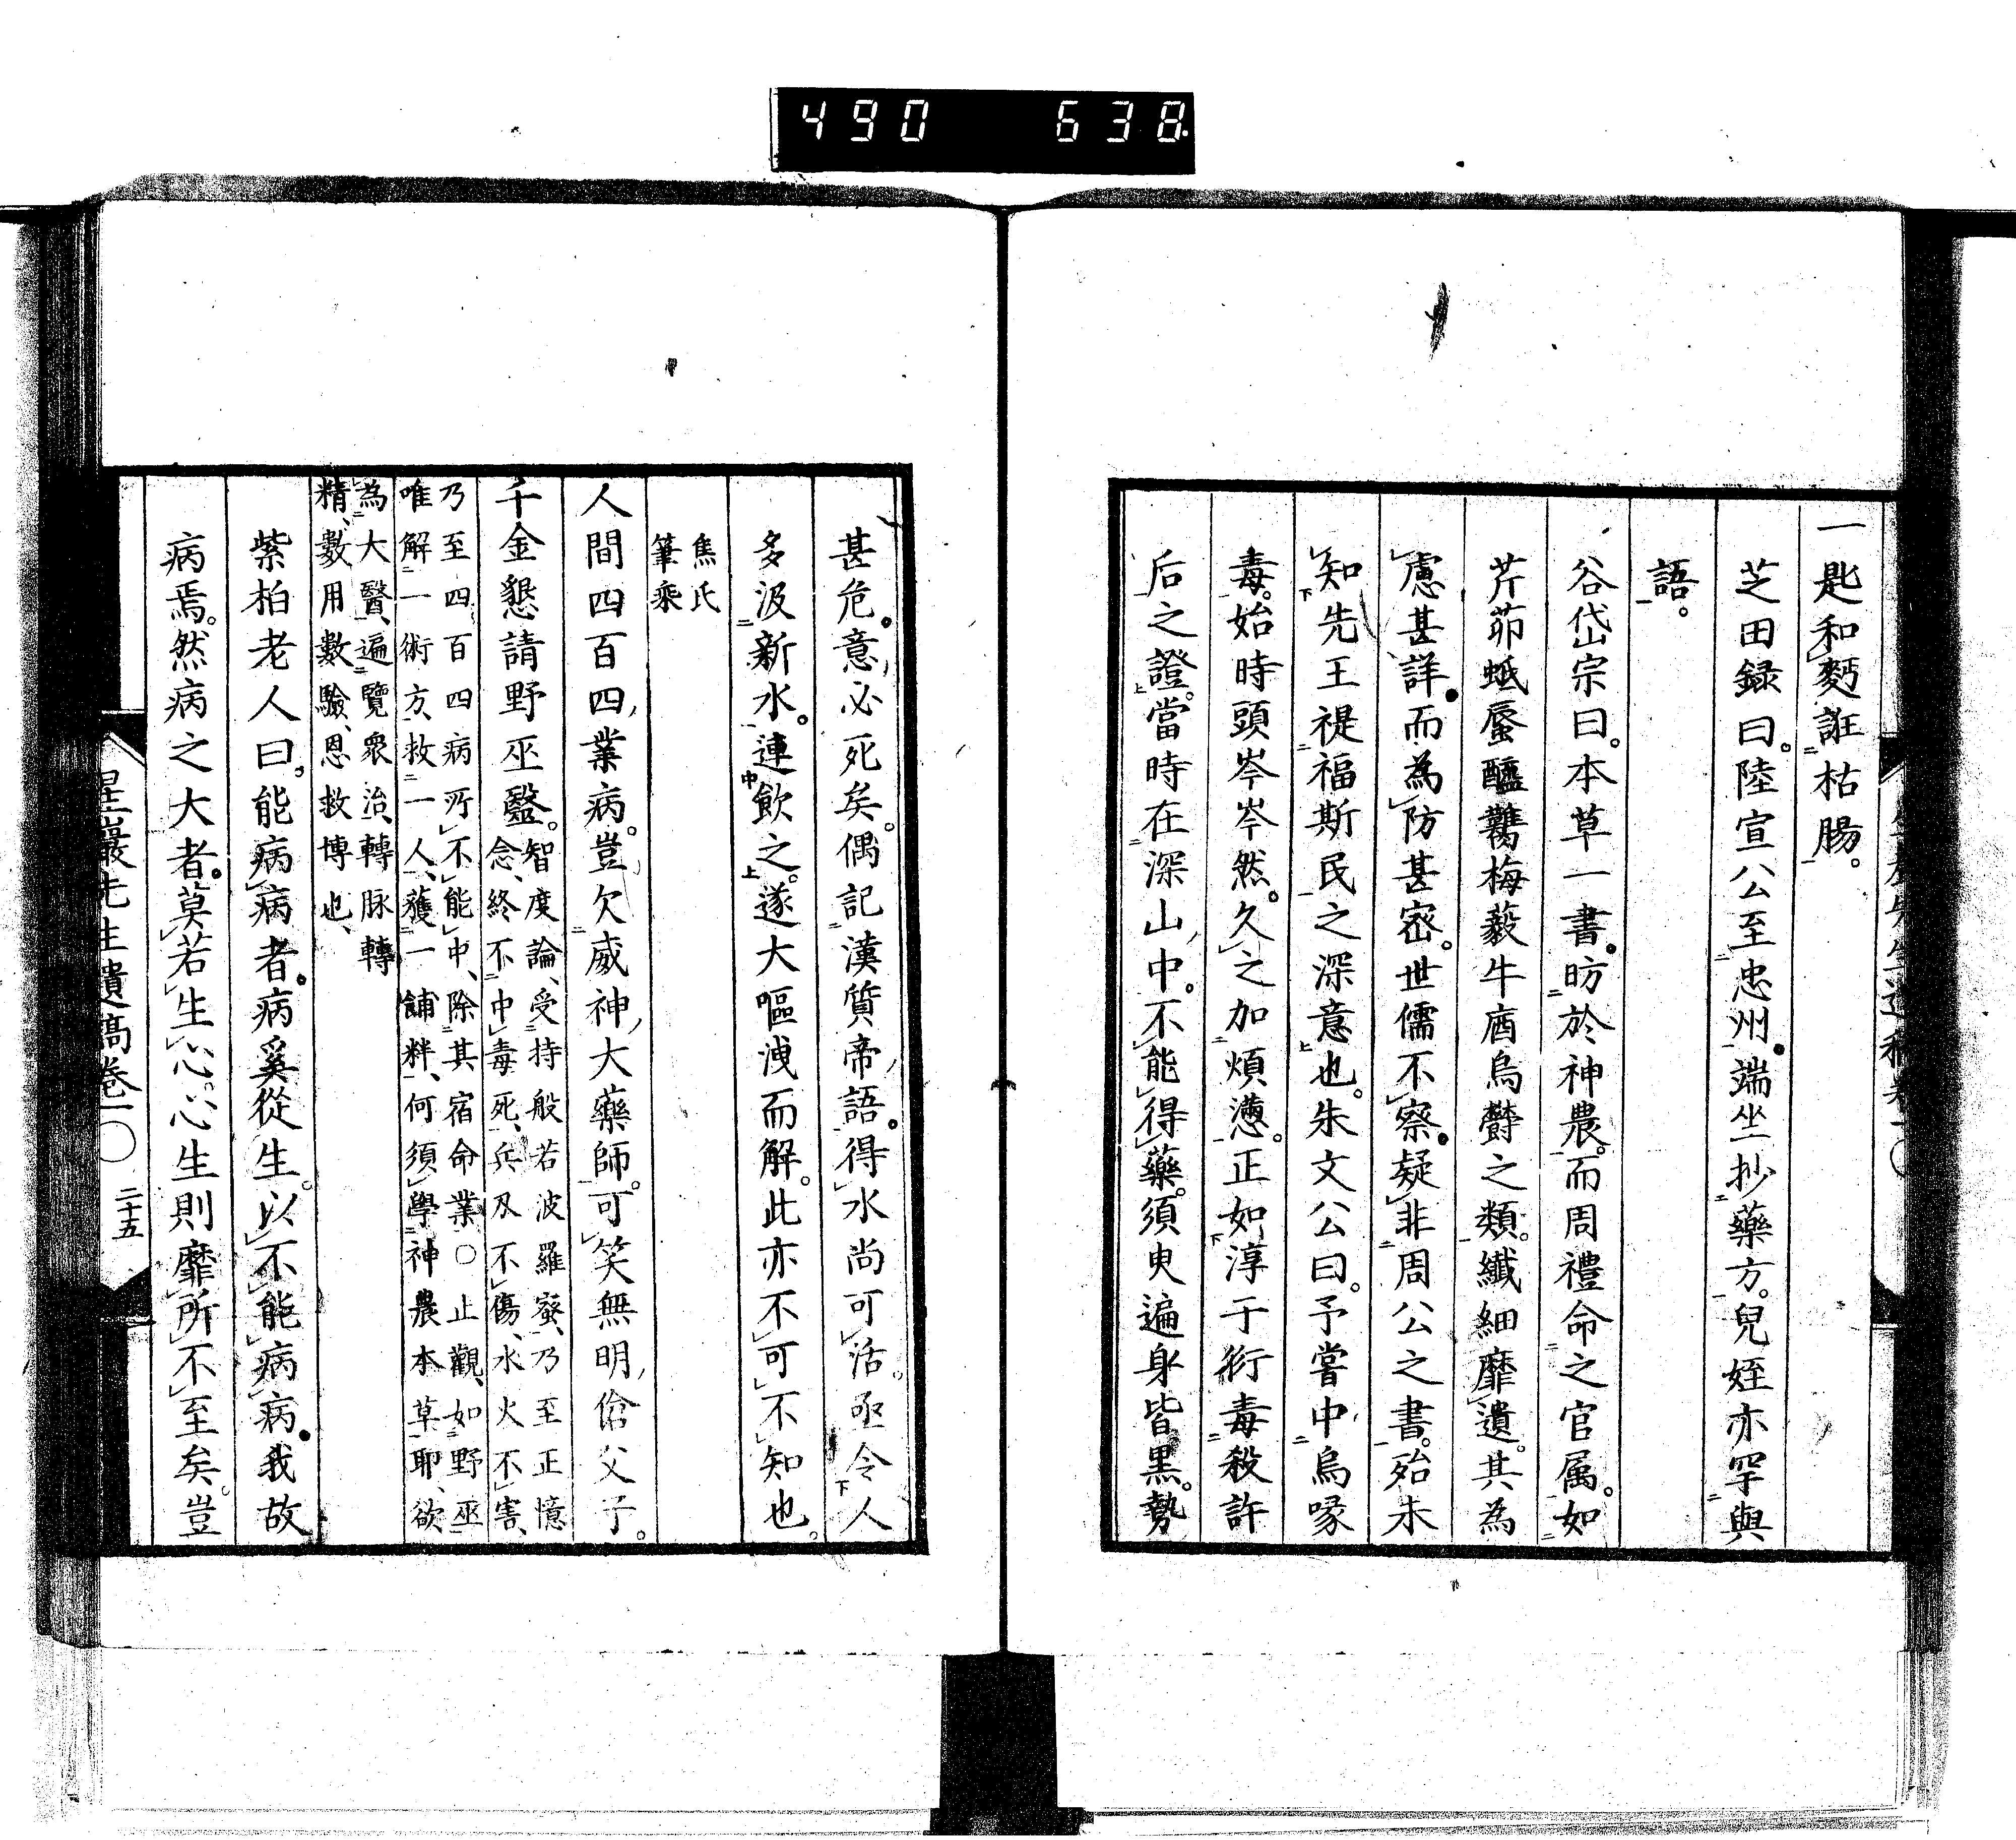 490 638
一匙和麪誑枯腸。
芝田録曰。陸宣公至忠州。端坐抄藥方。兒姪亦罕與
語。
谷岱宗曰。本草一書。昉於神農。而周禮命之官属。如
芹茆蚳蜃醯鷊梅藙牛庮烏欝之類。纎細靡遺。其為
慮甚詳。而為防甚密。世儒不察。疑非周公之書。殆未
知先王禔福斯民之深意也。朱文公曰。予嘗中烏喙
毒。始時頭岑岑然。久之加煩懣。正如淳于衍毒殺許
后之證。當時在深山中。不能得藥。須臾遍身皆黒。勢
甚危。意必死矣。偶記漢質帝語。得水尚可活。亟令人
多汲新水。連飲之。遂大嘔洩而解。此亦不可不知也。
焦氏
筆乘
人間四百四業病。豈欠威神大藥師。可笑無明傖父子。
千金懇請野巫毉。
智度論、受持般若波羅蜜、乃至正憶
念、終不中毒死、兵刃不傷、水火不害、
乃至四百四病所不能中、除其宿命業〇止觀、如野巫
唯解一術方、救一人、獲一餔粰、何須學神農本草耶、欲
為大醫、遍覽衆治、轉脉轉
精、數用數驗、恩救博也、
紫柏老人曰、能病病者。病奚從生。以不能病病。我故
病焉。然病之大者。莫若生心。心生則靡所不至矣。豈
星巖先生遺稾卷一〇 二十五